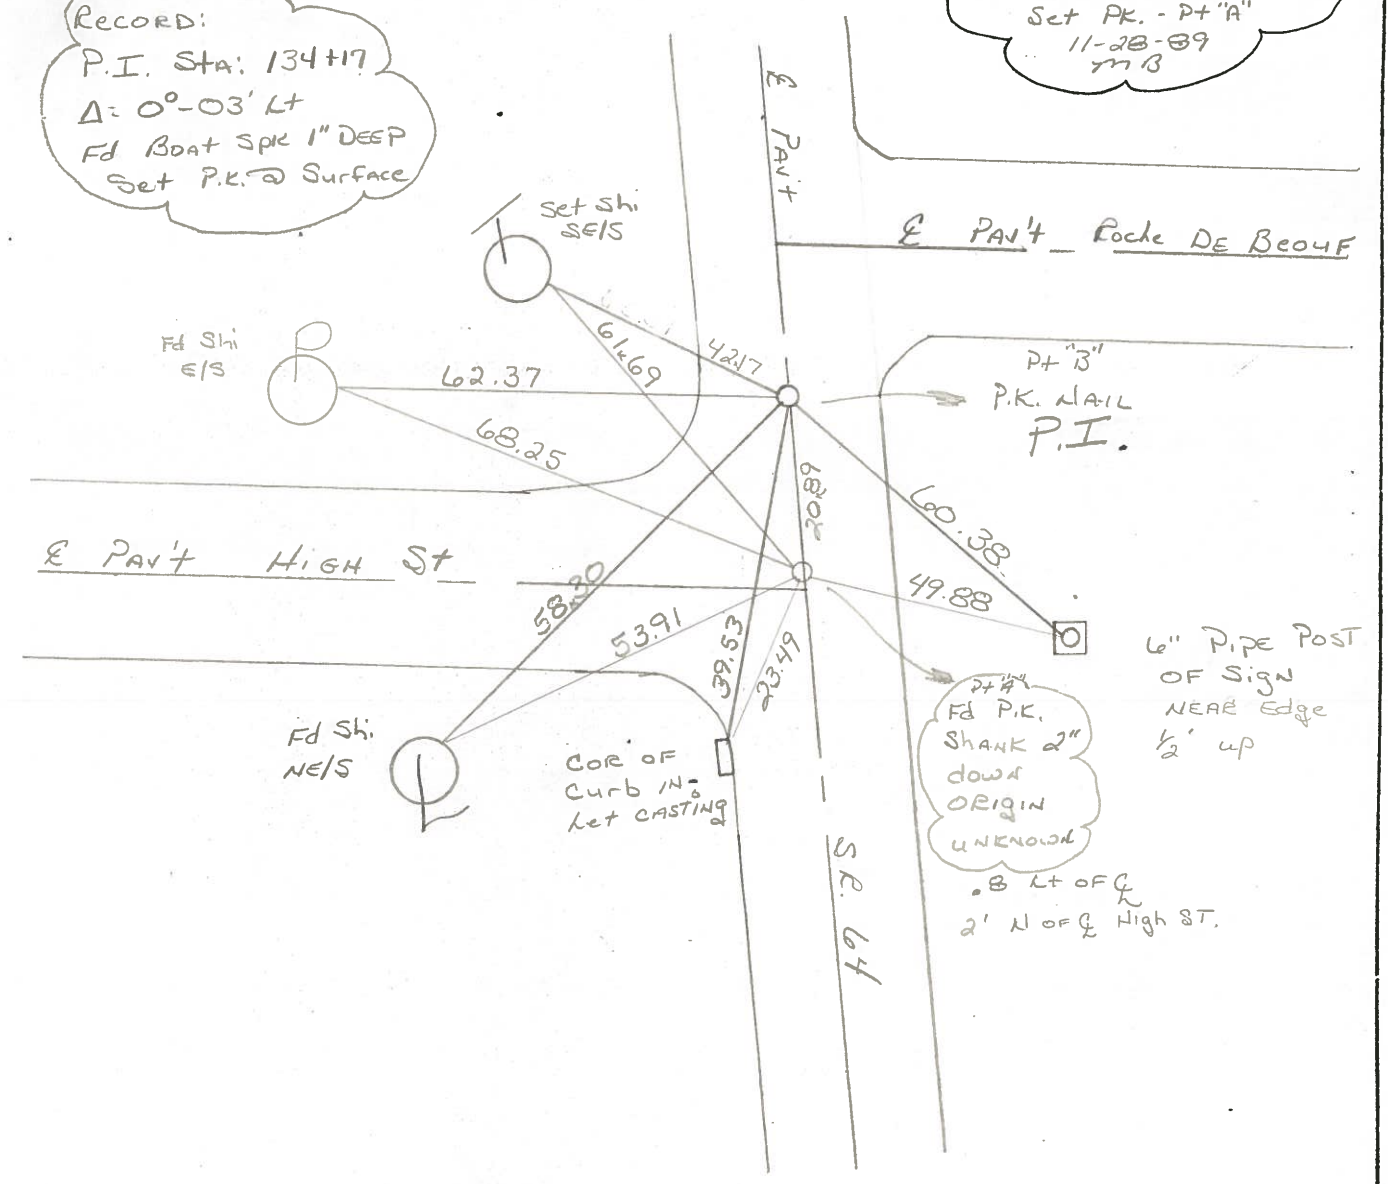 RECORD:
P.I. StA: 134+17
Δ= 0°-03' Lt
Fd Boat Spk 1" DEEP
Set P.K. @ Surface
Set PK. - Pt "A"
11-28-89
MB
℄ PAV't
℄ PAV't Roche DE BeouF
Set Shi
SE/S
Fd Shi
E/S
61.69
42.17
62.37
68.25
Pt "B"
P.K. NAIL
P.I.
20.89
60.38
℄ PAV't HIGH St
58.30
53.91
39.53
23.49
49.88
6" PIPE POST
OF SigN
NEAR Edge
1/2' up
Fd Shi.
NE/S
COR OF
Curb IN-
Let CASTINg
Pt "A"
Fd P.K.
ShANK 2"
down
ORIgIN
UNKNOWN
.8 Lt OF ℄
2' N OF ℄ High ST.
SR. 64